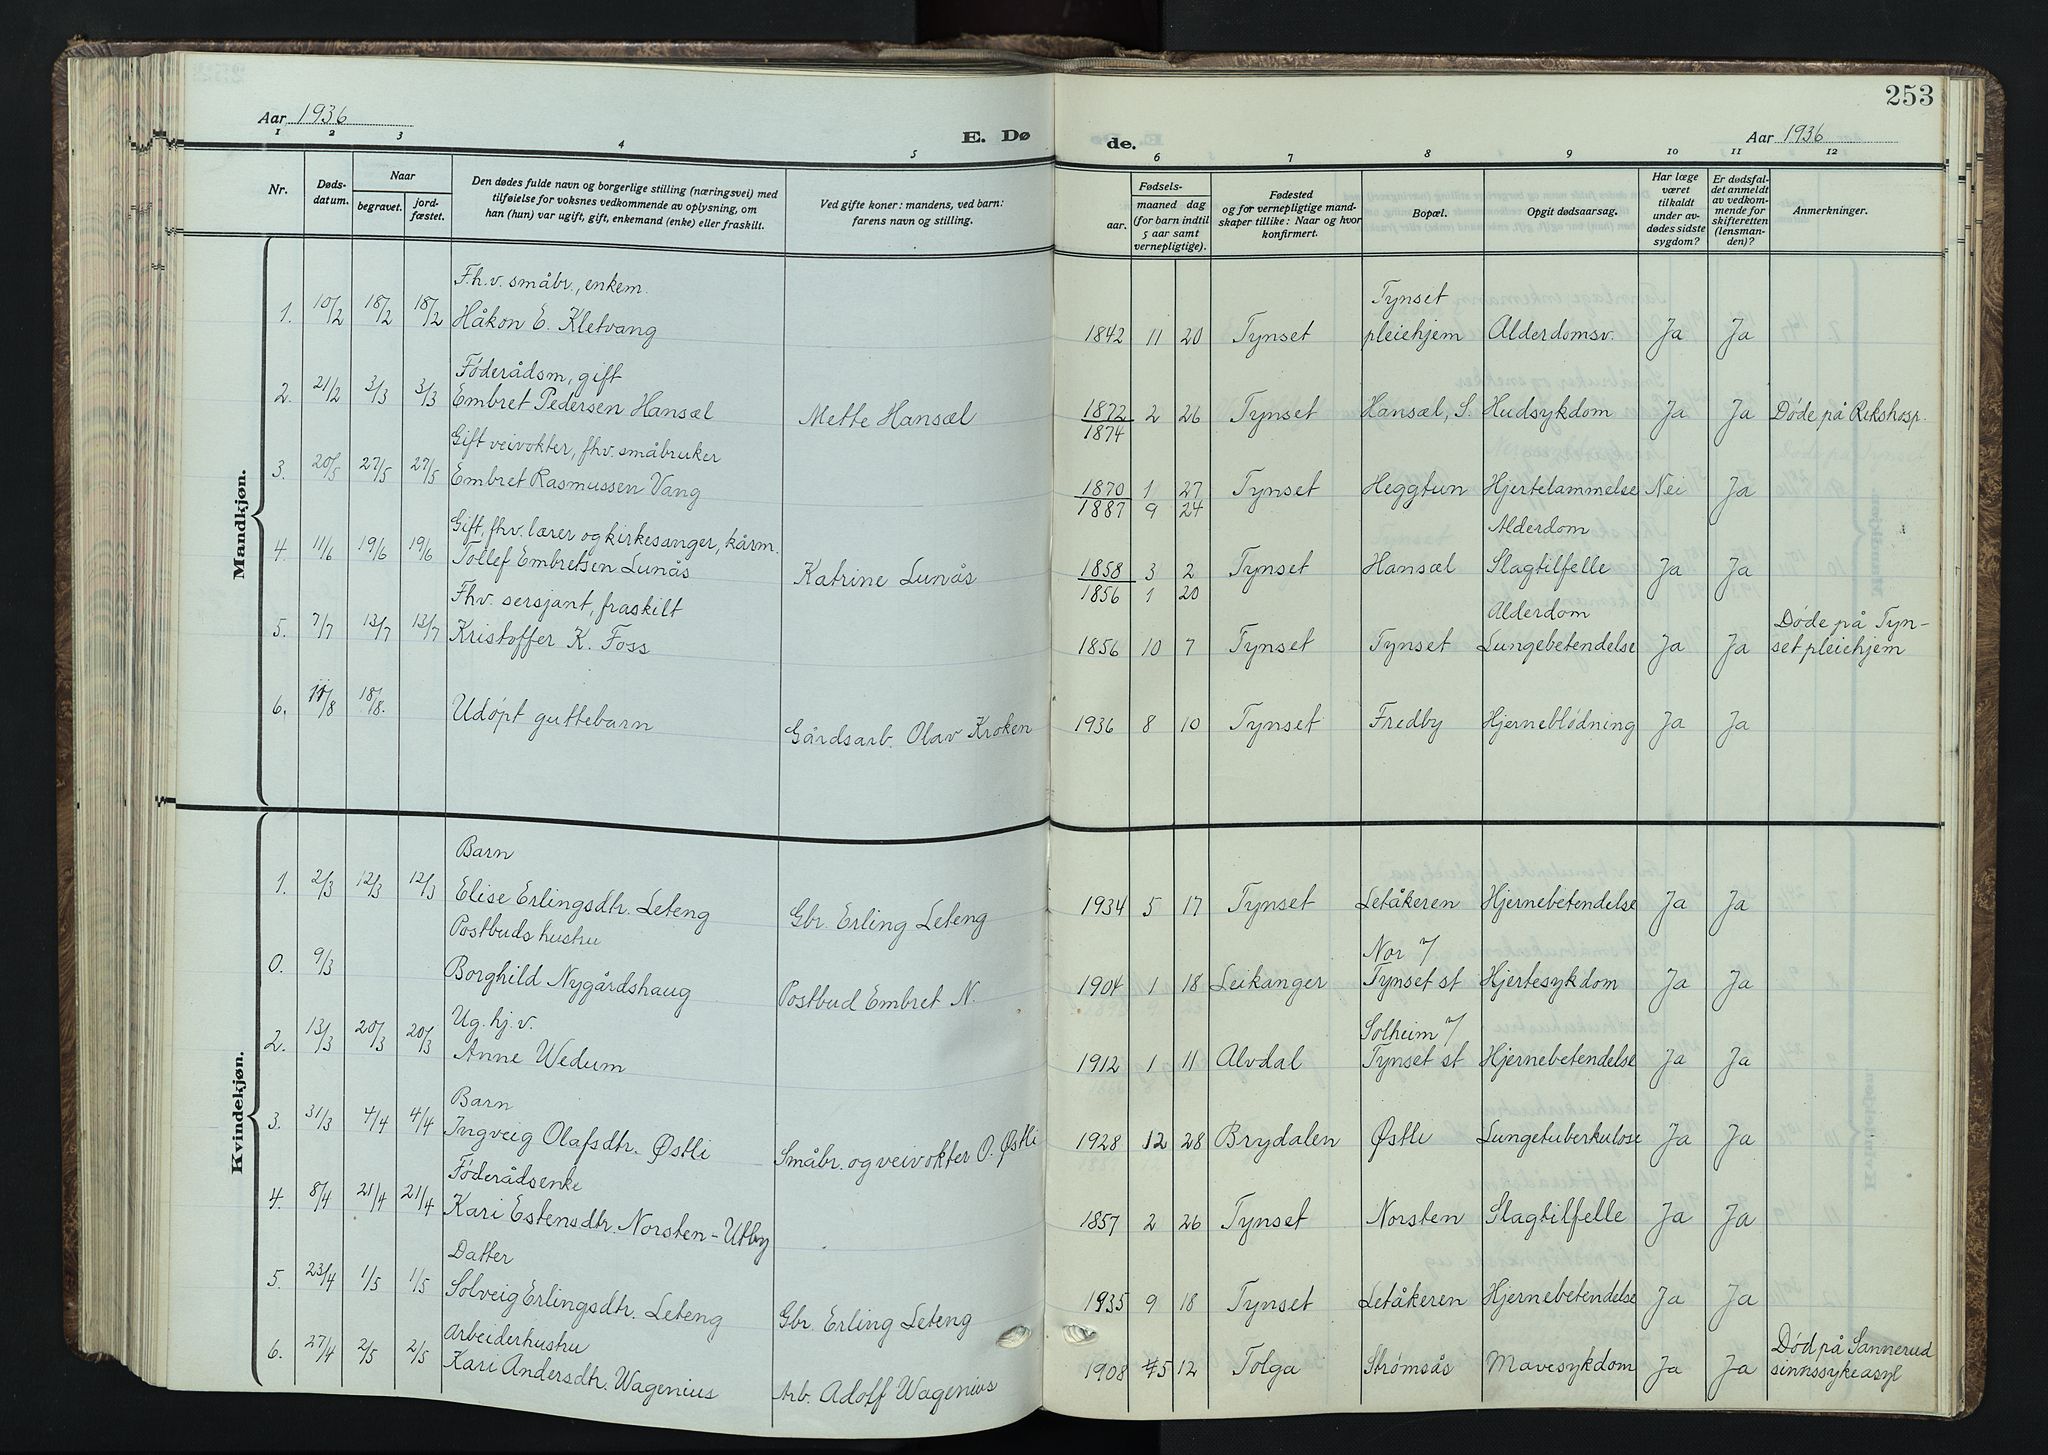 253
Aar 1936
E. Dø de.
Aar 1936
1 2 3 4 5 6 7 8 9 10 11 12
Nr.
Døds-
datum.
Naar
begravet.
jord-
fæstet.
Den dødes fulde navn og borgerlige stilling (næringsvei) med
tilføielse for voksnes vedkommende av oplysning, om
han (hun) var ugift, gift, enkemand (enke) eller fraskilt.
Ved gifte koner: mandens, ved barn:
farens navn og stilling.
Fødsels-
aar.
maaned dag
(for barn indtil
5 aar samt
vernepligtige).
Fødested
og for vernepligtige mand-
skaper tillike: Naar og hvor
konfirmert.
Bopæl.
Opgit dødsaarsag.
Har læge
været
tilkaldt
under av-
dødes sidste
sygdom?
Er dødsfal-
det anmeldt
av vedkom-
mende for
skifteretten
(lensman-
den)?
Anmerkninger.
Mandkjøn.
Fh.v. småbr., enkem. Tynset
1. 10/2 18/2 18/2 Håkon E. Kletvang 1842 11 20 Tynset pleiehjem Alderdomsv. Ja Ja
Føderådsm, gift
2. 21/2 3/3 3/3 Embret Pedersen Hansæl Mette Hansæl 1872 2 26 Tynset Hansæl, S. Hudsykdom Ja Ja Døde på Rikshosp.
1874
Gift veivokter, fhv. småbruker
3. 20/5 27/5 27/5 Embret Rasmussen Vang 1870 1 27 Tynset Heggtun Hjertelammelse Nei Ja
1887 9 24
Gift, fhv. lærer og kirkesanger, kårm. Alderdom
4. 11/6 19/6 19/6 Tollef Embretsen Lunås Katrine Lunås 1858 3 2 Tynset Hansæl Slagtilfelle Ja Ja
1856 1 20
Fhv. sersjant, fraskilt Alderdom Døde på Tyn-
5. 7/7 13/7 13/7 Kristoffer K. Foss 1856 10 7 Tynset Tynset Lungebetendelse Ja Ja set pleiehjem
6. 11/8 18/8. Udøpt guttebarn Gårdsarb. Olav Kroken 1936 8 10 Tynset Fredby Hjerneblødning Ja Ja
Kvindekjøn.
Barn
1. 2/3 12/3 12/3 Elise Erlingsdtr. Leteng Gbr. Erling Leteng 1934 5 17 Tynset Letåkeren Hjernebetendelse Ja Ja
Postbuds hustru Nor 7/
0. 9/3 Borghild Nygårdshaug Postbud Embret N. 1904 1 18 Leikanger Tynset st Hjertesykdom Ja Ja
Ug. hj. v. Solheim 7/
2. 13/3 20/3 20/3 Anne Wedum 1912 1 11 Alvdal Tynset st Hjernebetendelse Ja Ja
Barn
3. 31/3 4/4 4/4 Ingveig Olafsdtr. Østli Småbr. og veivokter O. Østli 1928 12 28 Brydalen Østli Lungetuberkulose Ja Ja
Føderådsenke
4. 8/4 21/4 21/4 Kari Estensdtr. Norsten-Utby 1857 2 26 Tynset Norsten Slagtilfelle Ja Ja
Datter
5. 23/4 1/5 1/5 Solveig Erlingsdtr. Leteng Gbr. Erling Leteng 1935 9 18 Tynset Letåkeren Hjernebetendelse Ja Ja
Arbeiderhustru Død på Sannerud
6. 27/4 2/5 2/5 Kari Andersdtr. Wagenius Arb. Adolf Wagenius 1908 5 12 Tolga Strømsås Mavesykdom Ja Ja sinnssykeasyl